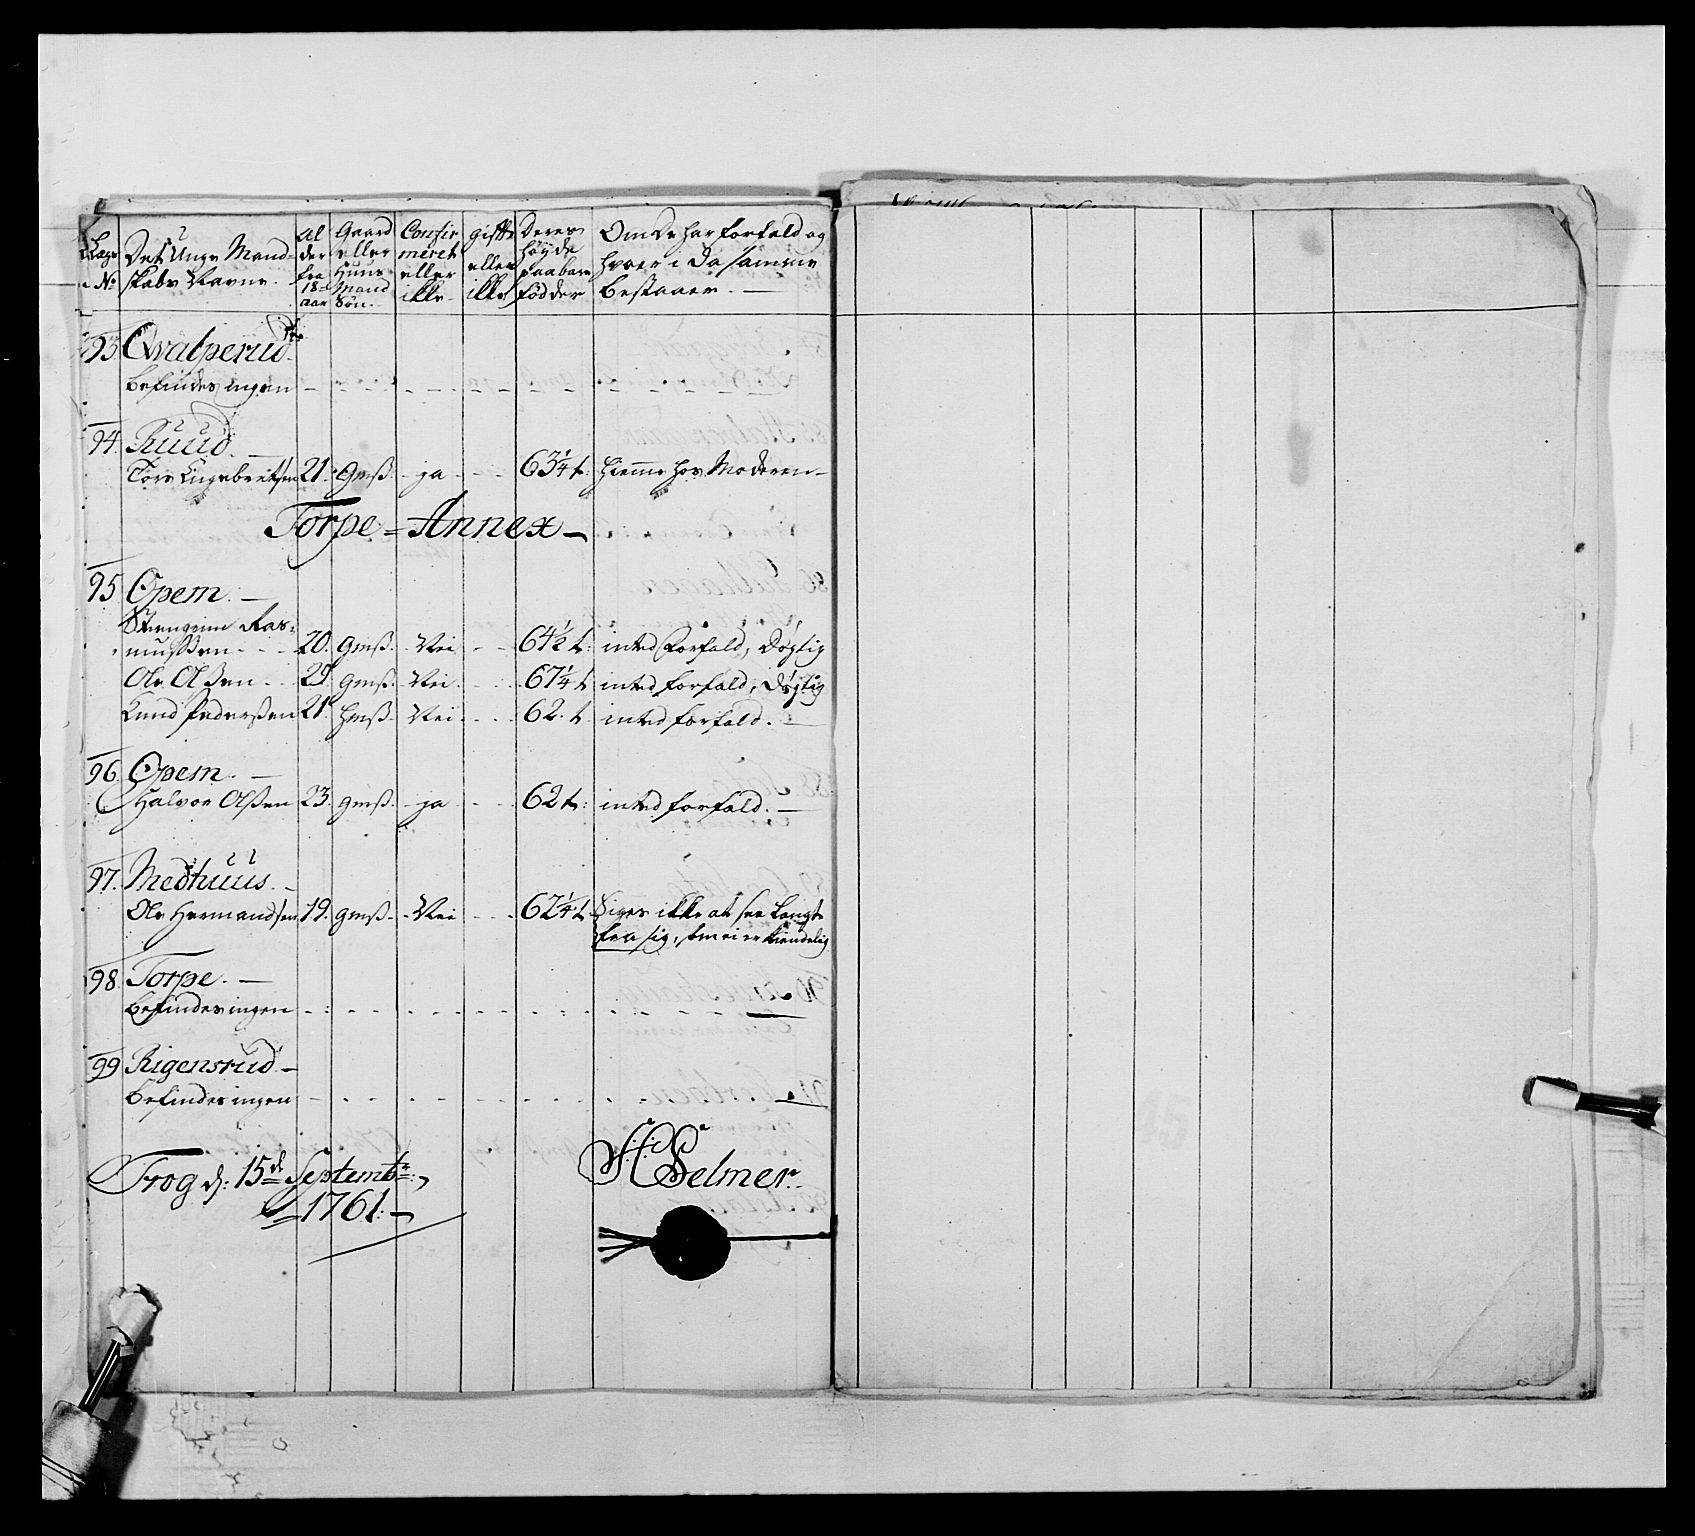 Lægs No | Det Unge Mandskabs Navne | Alder fra 18 aar | Gaard eller Huusmand Søn. | Confirmeret eller ikke | gifft eller ikke | Deres høyde paa bare Fødder | Om De har Forfald og hvori Da samme bestaaer. —
93. Qvalperud
befindes ingen
94. Ruud. —
Tore Engebretsen 21. gmß. ja 63¼ t. hiemme hos Moderen
Torpe = Annex —
95 Opem. —
Ras-
mußen 20. gmß. Nei 64½ t: inted Forfald, Døgtig
Ole Olßen gmß. Nei 67¼ t inted forfald, Døgtig
Knud Pederßen 21. hmß. Nei 62. t. inted forfald. —
96. Opem. —
Halvor Olßen 23. gmß. ja 62 t: inted forfald. —
97. Medhuus. —
Ole Hermandsen 19. gmß. Nei 62¼ t Siges ikke at see langt
fra sig, som ei er kiendelig
98. Torpe. —
befindes ingen
99 Rigensrud —
befindes ingen
Trog d: 15de Septembr:
1761. —
HSelmer.